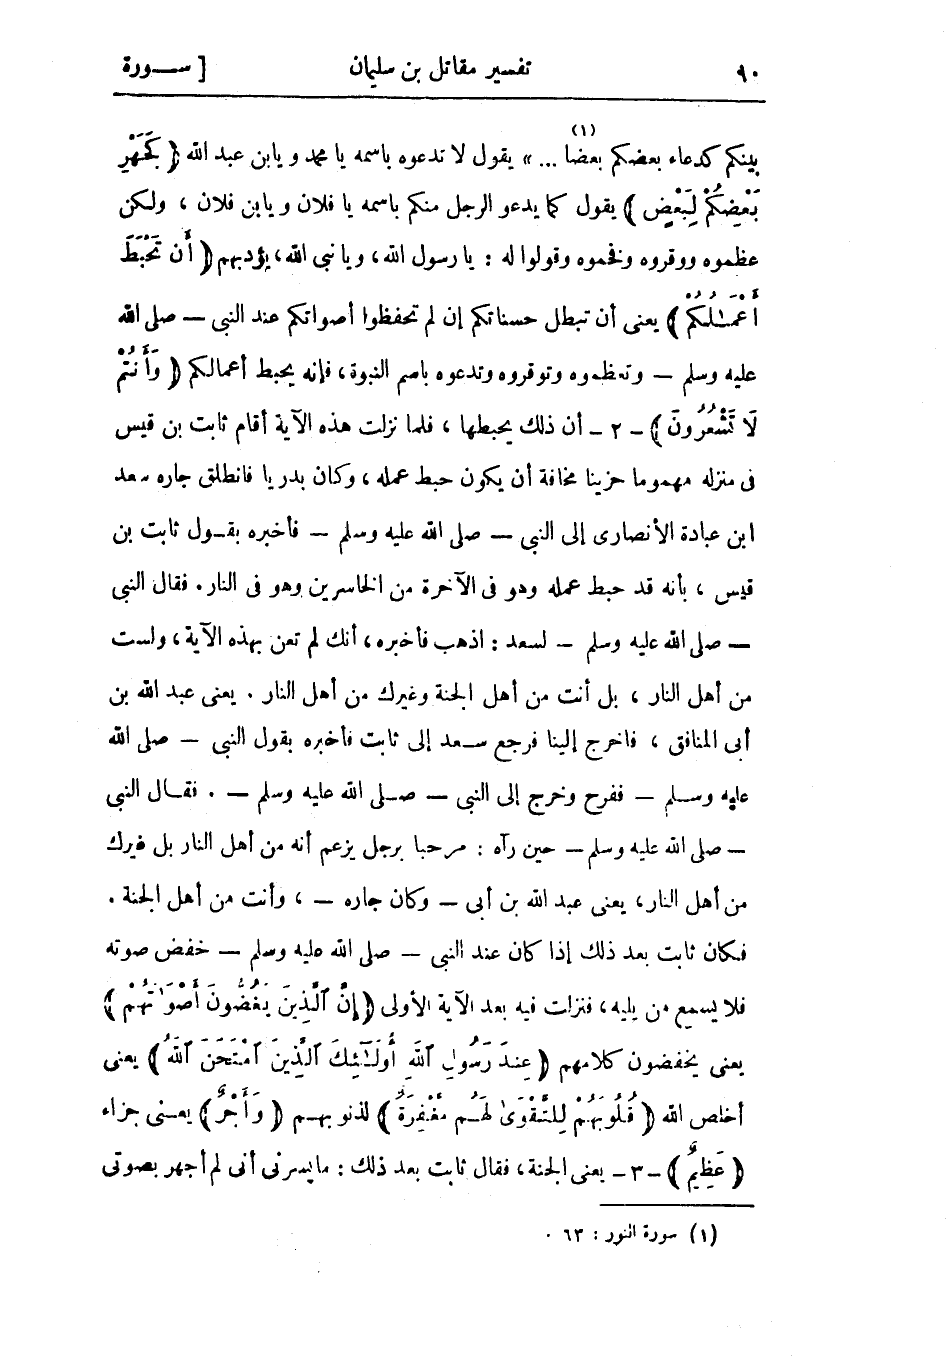 ٩٠ تفسير مقاتل بن سليمان [ ســورة
بينكم كدعاء بعضكم بعضا ... » (١) يقول لا تدعوه باسمه يا محمد ويابن عبد الله ﴿ كَجَهْرِ
بَعْضِكُمْ لِبَعْضٍ ﴾ يقول كما يدعو الرجل منكم باسمه يا فلان ويابن فلان ، ولكن
عظموه ووقروه وفخموه وقولوا له : يا رسول الله ، ويا نبى الله ، يؤدبهم ﴿ أَن تَحْبَطَ
أَعْمَـٰلُكُمْ ﴾ يعنى أن تبطل حسناتكم إن لم تحفظوا أصواتكم عند النبى — صلى الله
عليه وسلم — وتعظموه وتوقروه وتدعوه باسم النبوة ، فإنه يحبط أعمالكم ﴿ وَأَنتُمْ
لَا تَشْعُرُونَ ﴾ — ٢ — أن ذلك يحبطها ، فلما نزلت هذه الآية أقام ثابت بن قيس
فى منزله مهموما حزينا مخافة أن يكون حبط عمله ، وكان بدريا فانطلق جاره سعد
ابن عبادة الأنصارى إلى النبى — صلى الله عليه وسلم — فأخبره بقـول ثابت بن
قيس ، بأنه قد حبط عمله وهو فى الآخرة من الخاسرين وهو فى النار . فقال النبى
— صلى الله عليه وسلم — لسعد : اذهب فأخبره ، أنك لم تعن بهذه الآية ، ولست
من أهل النار ، بل أنت من أهل الجنة وغيرك من أهل النار . يعنى عبد الله بن
أبى المنافق ، فاخرج إلينا فرجع سـعد إلى ثابت فأخبره بقول النبى — صلى الله
عليه وسـلم — ففرح وخرج إلى النبى — صـلى الله عليه وسلم — . فقـال النبى
— صلى الله عليه وسلم — حين رآه : مرحبا برجل يزعم أنه من أهل النار بل غيرك
من أهل النار ، يعنى عبد الله بن أبى — وكان جاره — ، وأنت من أهل الجنة .
فكان ثابت بعد ذلك إذا كان عند النبى — صلى الله عليه وسلم — خفض صوته
فلا يسمع من يليه ، فنزلت فيه بعد الآية الأولى ﴿ إِنَّ ٱلَّذِينَ يَغُضُّونَ أَصْوَٰتَهُمْ ﴾
يعنى يخفضون كلامهم ﴿ عِندَ رَسُولِ ٱللَّهِ أُولَـٰٓئِكَ ٱلَّذِينَ ٱمْتَحَنَ ٱللَّهُ ﴾ يعنى
أخلص الله ﴿ قُلُوبَهُمْ لِلتَّقْوَىٰ لَهُم مَّغْفِرَةٌ ﴾ لذنوبهـم ﴿ وَأَجْرٌ ﴾ يعـنى جزاء
﴿ عَظِيمٌ ﴾ — ٣ — يعنى الجنة ، فقال ثابت بعد ذلك : ما يسرنى أنى لم أجهر بصوتى
(١) سورة النور : ٦٣ .